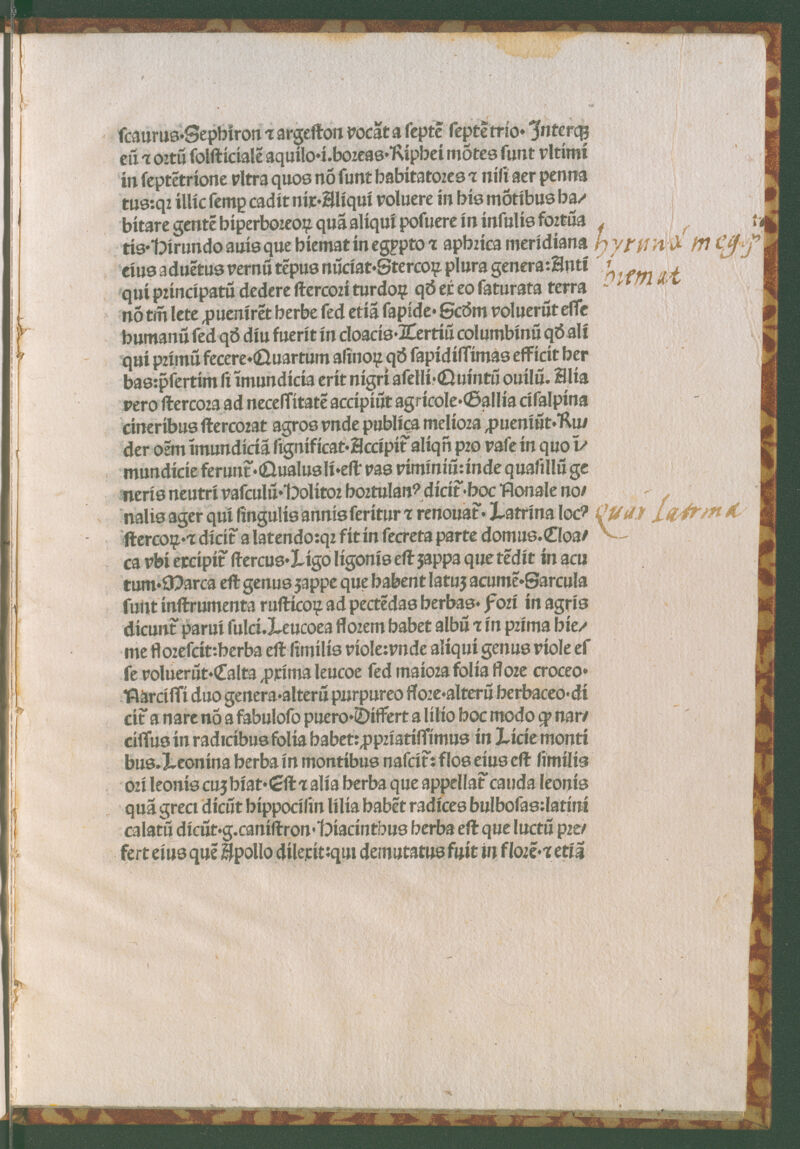 ſcaurus·Sephiron ⁊ argeſton vocãt a ſeptẽ ſeptẽtrio· Interqꝫ
eũ ⁊ ortũ ſolſticialẽ aquilo·i.boreas·Riphei mõtes ſunt vltimi
in ſeptẽtrione vltra quos nõ ſunt habitatores ⁊ niſi aer penna
tus:qꝛ illic ſemꝑ cadit nix·Aliqui voluere in his mõtibus ha⸗
bitare gentẽ hiperboreoꝝ quã aliqui poſuere in inſulis fortũa
tis·Hirundo auis que hiemat in egypto ⁊ aphrica meridiana
eius aduẽtus vernũ tẽpus nũciat·Stercoꝝ plura genera:Anti
qui principatũ dedere ſtercori turdoꝝ qđ ex eo ſaturata terra
nõ tm̃ lete ꝓuenirẽt herbe ſed etiã ſapide· Scđm voluerũt eſſe
humanũ ſed qđ diu fuerit in cloacis·Tertiũ columbinũ qđ ali
qui primũ fecere·Quartum aſinoꝝ qđ ſapidiſſimas efficit her
bas:p̃ſertim ſi ĩmundicia erit nigri aſelli·Quintũ ouilũ. Alia
vero ſtercora ad neceſſitatẽ accipiũt agricole·Gallia ciſalpina
cineribus ſtercorat agros vnde publica meliora ꝓueniũt·Ru⸗
der oẽm ĩmundiciã ſignificat·Accipit᷑ aliqñ pro vaſe in quo ĩ⸗
mundicie ferunt᷑·Qualus li·eſt vas viminiũ:inde quaſillũ ge
neris neutri vaſculũ·Holitor hortulanꝰ dicit᷑·hoc Nonale no⸗
nalis ager qui ſingulis annis ſeritur ⁊ renouat᷑· Latrina locꝰ
ſtercoꝝ·⁊ dicit᷑ a latendo:qꝛ fit in ſecreta parte domus.Cloa⸗
ca vbi excipit᷑ ſtercus·Ligo ligonis eſt ꝫappa que tẽdit in acu
tum·Marca eſt genus ꝫappe que habent latuꝫ acumẽ·Sarcula
ſunt inſtrumenta ruſticoꝝ ad pectẽdas herbas· Fori in agris
dicunt᷑ parui ſulci.Leucoea florem habet albũ ⁊ in prima hie⸗
me floreſcit:herba eſt ſimilis viole:vnde aliqui genus viole eſ
ſe voluerũt·Calta ꝓxima leucoe ſed maiora folia flore croceo·
Narciſſi duo genera·alterũ purpureo flore·alterũ herbaceo·di
cit᷑ a nare nõ a fabuloſo puero·Differt a lilio hoc modo ꝙ nar⸗
ciſſus in radicibus folia habet:ꝓpriatiſſimus in Licie monti
bus.Leonina herba in montibus naſcit᷑: flos eius eſt ſimilis
ori leonis cuꝫ hiat·Eſt ⁊ alia herba que appellat᷑ cauda leonis
quã greci dicũt hippociſin lilia habẽt radices bulboſas:latini
calatũ dicũt·g.caniſtron·Hiacinthus herba eſt que luctũ pre⸗
fert eius quẽ Apollo dilexit:qui demutatus fuit in florẽ·⁊ etiã
hyrund̃ in
hiemat
Quar latrina